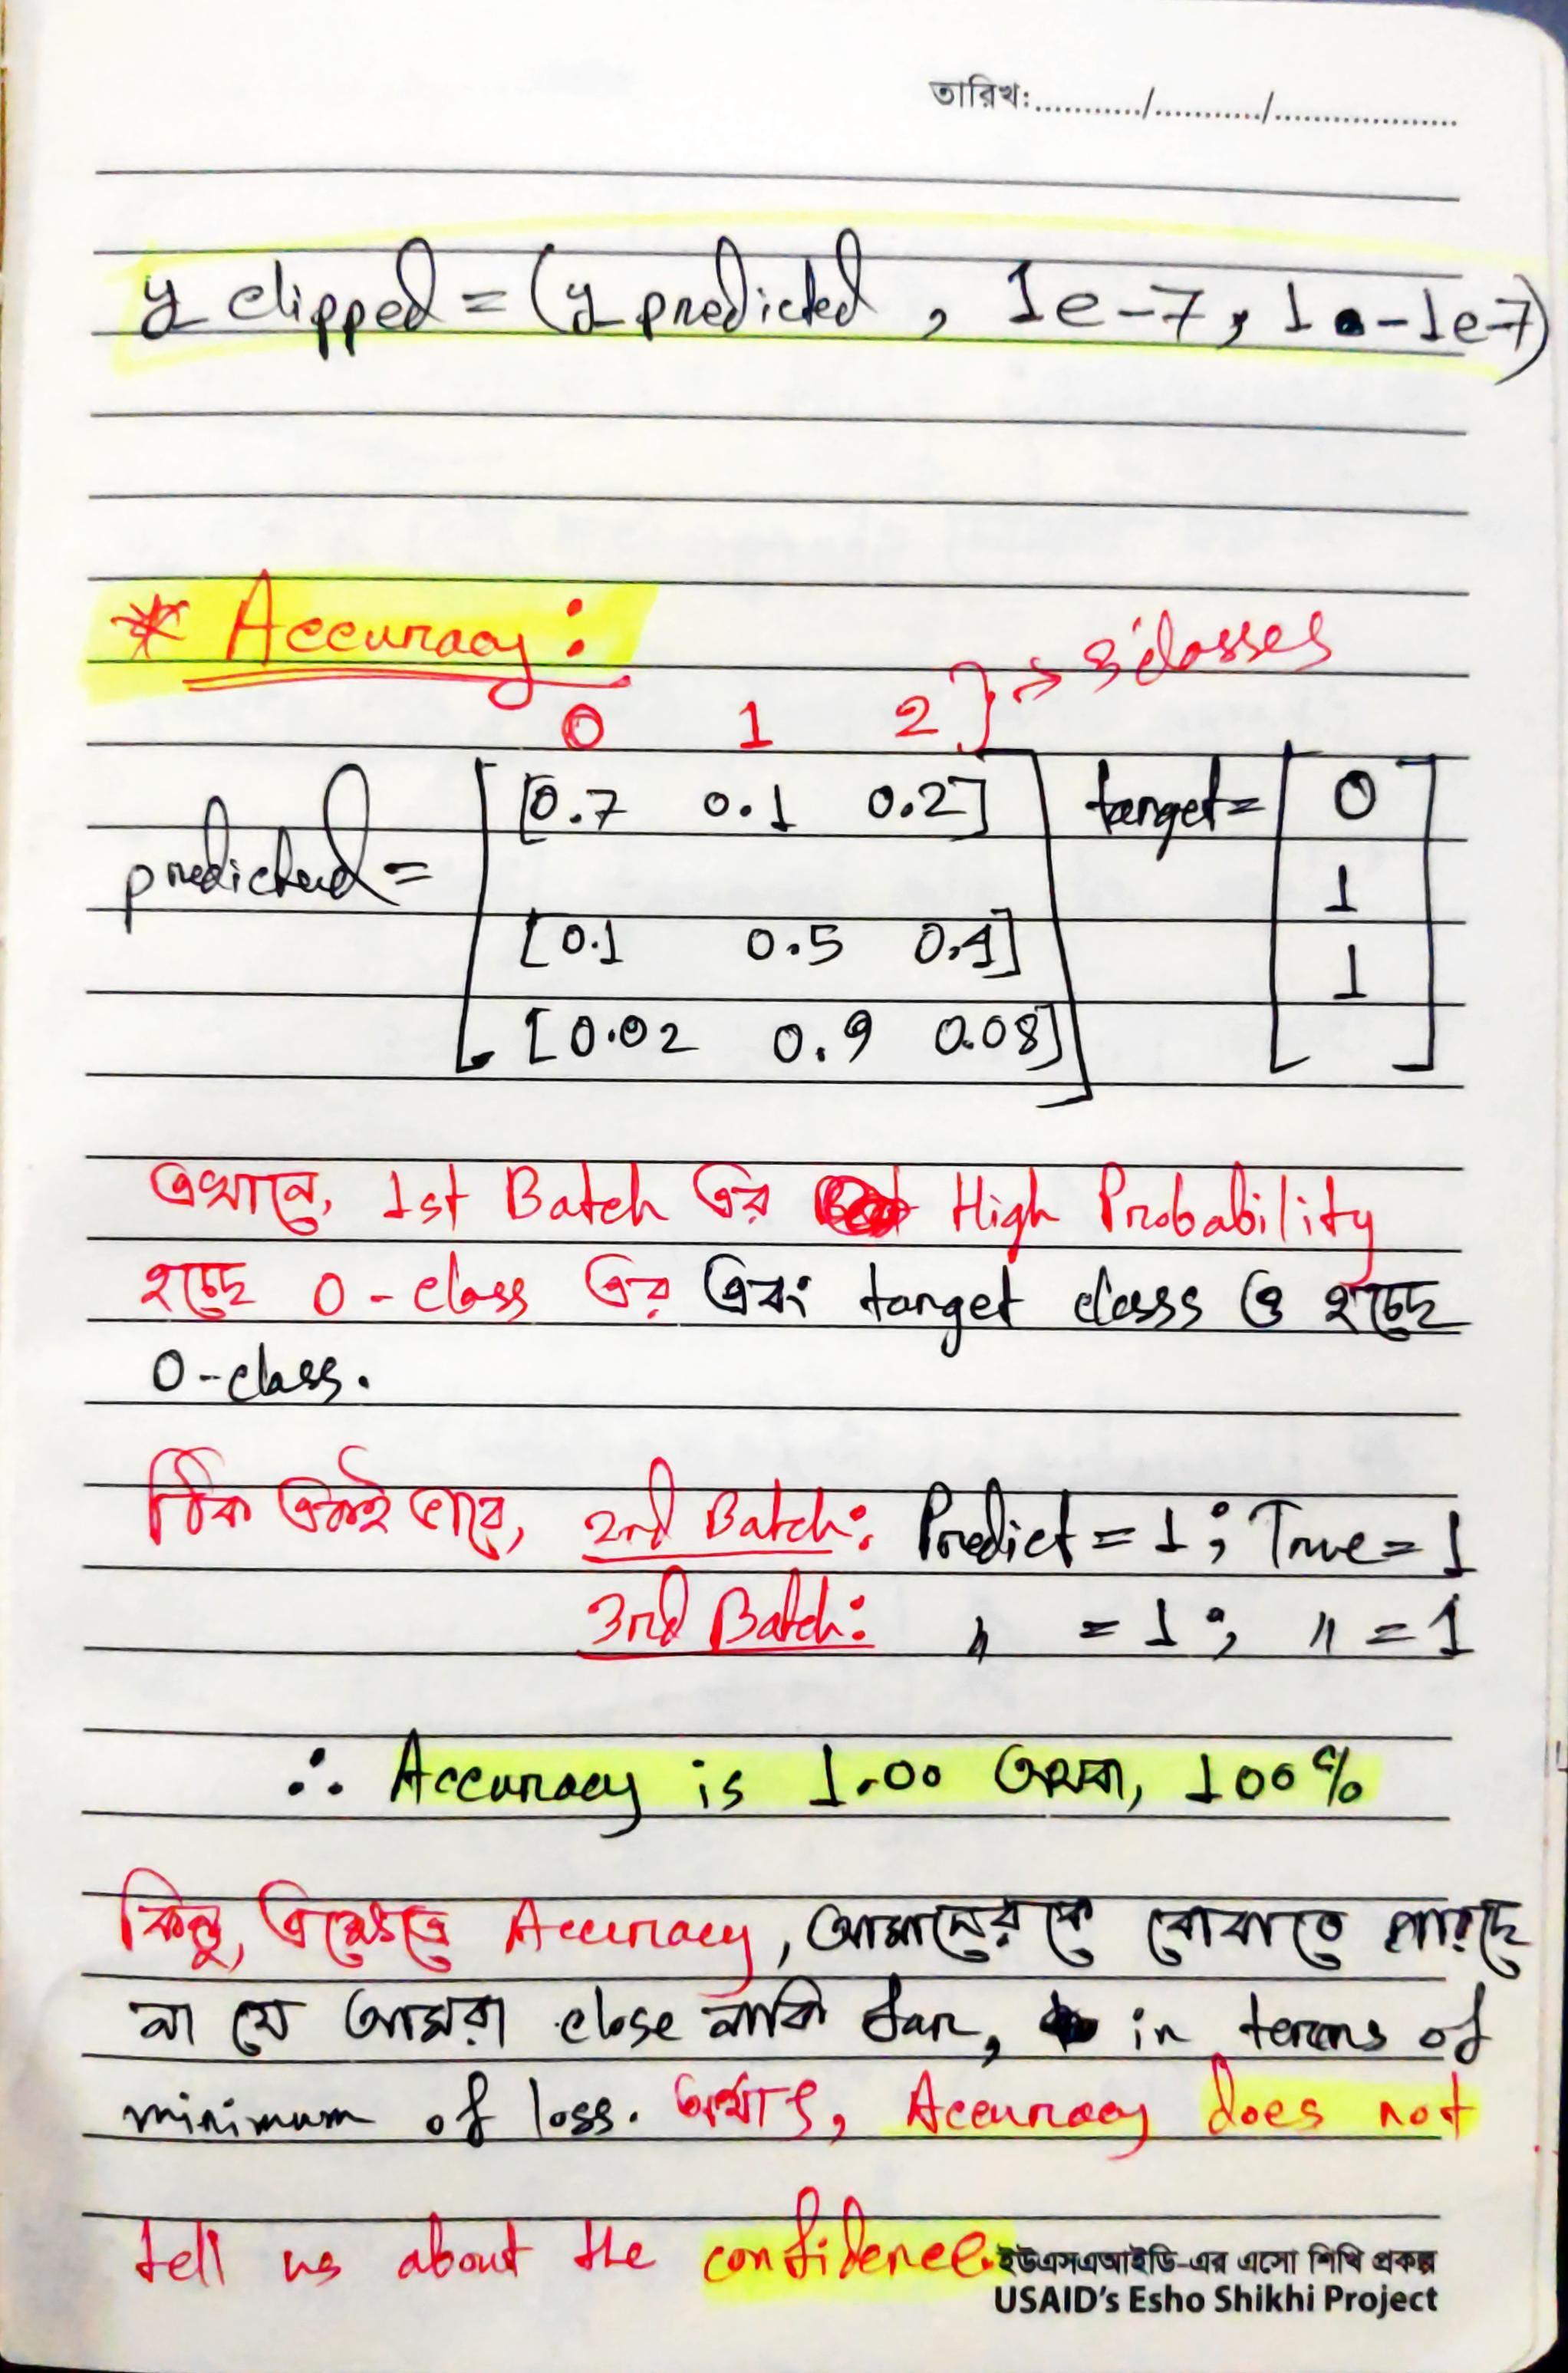 তারিখ:.........../.........../...................
y clipped = (y predicted , 1e-7, 1 - 1e-7)
* Accuracy:
0 1 2 } → 3 classes
predicted = [[0.7 0.1 0.2] target = [0
1
[0.1 0.5 0.4]
1
[0.02 0.9 0.08]] ]
এখানে, 1st Batch এর High Probability
হচ্ছে 0-class এর এবং target class ও হচ্ছে
0-class.
ঠিক একই ভাবে, 2nd Batch: Predict = 1; True = 1
3rd Batch: " = 1; " = 1
∴ Accuracy is 1.00 অথবা, 100%
কিন্তু, এক্ষেত্রে Accuracy, আমাদেরকে বোঝাতে পারছে
না যে আমরা close নাকি far, in terms of
minimum of loss. অর্থাৎ, Accuracy does not
tell us about the confidence.
ইউএসএআইডি-এর এসো শিখি প্রকল্প
USAID's Esho Shikhi Project